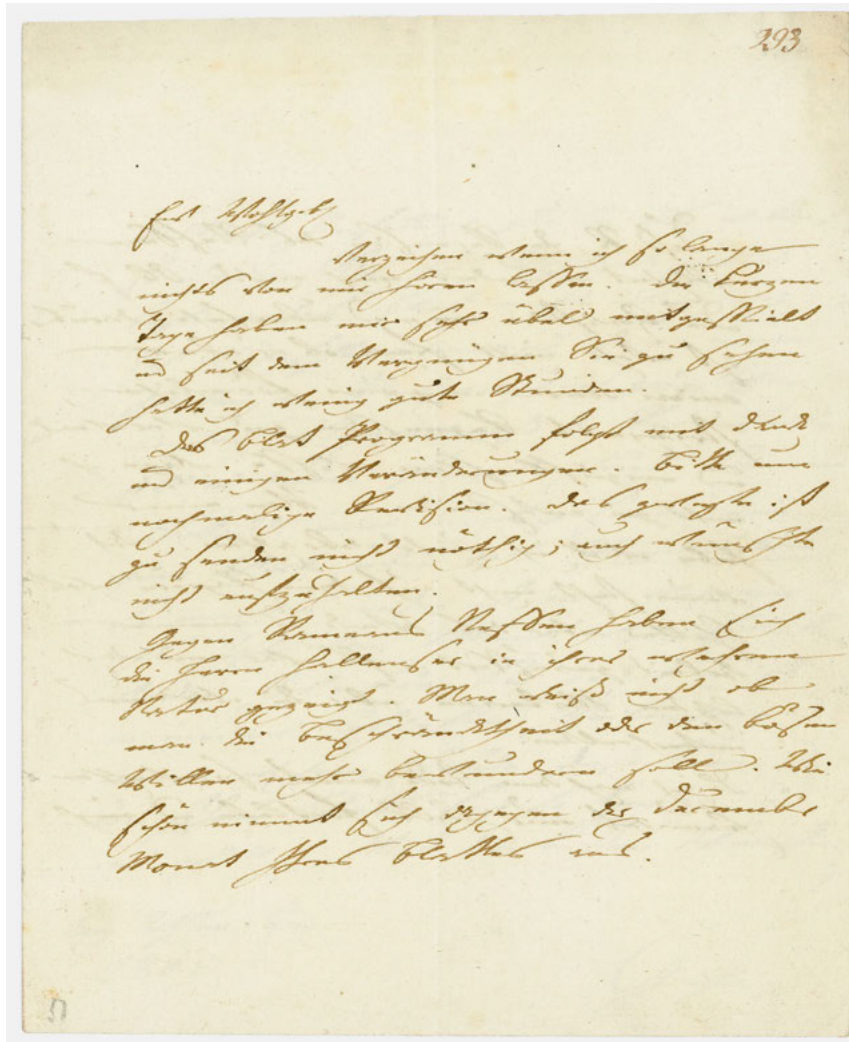 293
Ew Wohlgeb
Verzeihen wenn ich so lange
nichts von mir hören lassen. Die kurzen
Tage haben mir sehr übel mitgespielt
und seit dem Vergnügen Sie zu sehen
hatte ich wenig gute Stunden.
Das Blat Programm folgt mit Danck
und einigen Veränderungen. Bitte um
nochmalige Revision. Das gelegte ist
zu senden nicht nöthig; auch wünschte
nicht aufzuhalten.
Gegen Rameaus Neffen haben sich
die Herrn Hallenser in ihrer wahren
Natur gezeigt. Man weiß nicht ob
man die Beschräncktheit oder den bösen
Willen mehr bewundern soll. Wie
schön nimmt sich dagegen der December
Monat Ihres Blattes aus.